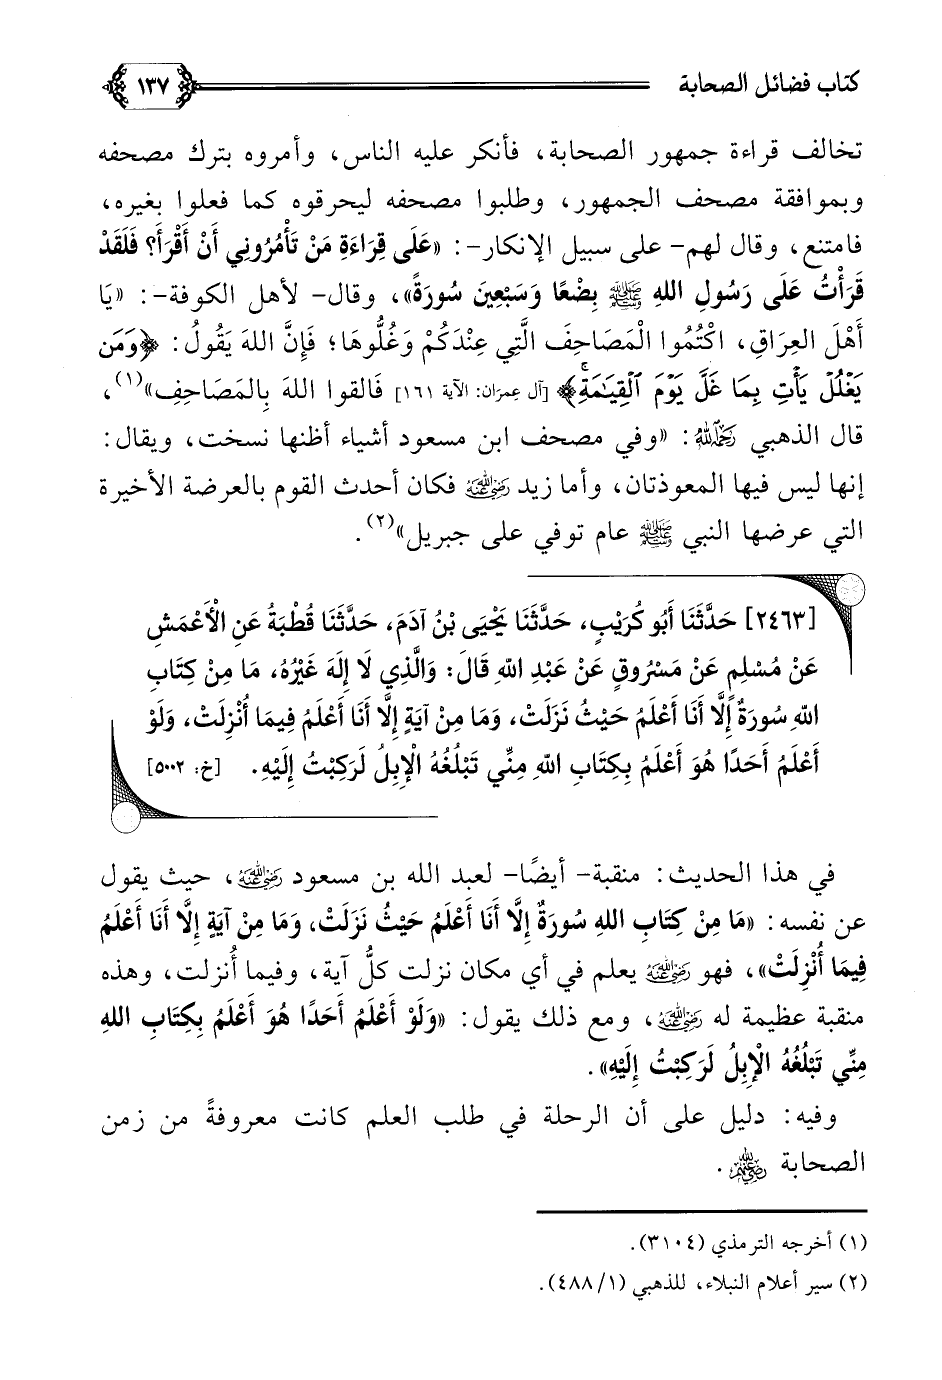 كتاب فضائل الصحابة ١٣٧
تخالف قراءة جمهور الصحابة، فأنكر عليه الناس، وأمروه بترك مصحفه
وبموافقة مصحف الجمهور، وطلبوا مصحفه ليحرقوه كما فعلوا بغيره،
فامتنع، وقال لهم- على سبيل الإنكار-: «عَلَى قِرَاءَةِ مَنْ تَأْمُرُونِي أَنْ أَقْرَأَ؟ فَلَقَدْ
قَرَأْتُ عَلَى رَسُولِ اللهِ ﷺ بِضْعًا وَسَبْعِينَ سُورَةً»، وقال- لأهل الكوفة-: «يَا
أَهْلَ العِرَاقِ، اكْتُمُوا الْمَصَاحِفَ الَّتِي عِنْدَكُمْ وَغُلُّوهَا؛ فَإِنَّ اللهَ يَقُولُ: ﴿وَمَن
يَغْلُلْ يَأْتِ بِمَا غَلَّ يَوْمَ ٱلْقِيَٰمَةِۚ﴾ [آل عِمرَان: الآية ١٦١] فَالقوا اللهَ بِالمَصَاحِفِ»(١)،
قال الذهبي رَحِمَهُ اللَّهُ: «وفي مصحف ابن مسعود أشياء أظنها نسخت، ويقال:
إنها ليس فيها المعوذتان، وأما زيد رَضِيَ اللَّهُ عَنْهُ فكان أحدث القوم بالعرضة الأخيرة
التي عرضها النبي ﷺ عام توفي على جبريل»(٢).
[٢٤٦٣] حَدَّثَنَا أَبُو كُرَيْبٍ، حَدَّثَنَا يَحْيَى بْنُ آدَمَ، حَدَّثَنَا قُطْبَةُ عَنِ الْأَعْمَشِ
عَنْ مُسْلِمٍ عَنْ مَسْرُوقٍ عَنْ عَبْدِ اللهِ قَالَ: وَالَّذِي لَا إِلَهَ غَيْرُهُ، مَا مِنْ كِتَابِ
اللهِ سُورَةٌ إِلَّا أَنَا أَعْلَمُ حَيْثُ نَزَلَتْ، وَمَا مِنْ آيَةٍ إِلَّا أَنَا أَعْلَمُ فِيمَا أُنْزِلَتْ، وَلَوْ
أَعْلَمُ أَحَدًا هُوَ أَعْلَمُ بِكِتَابِ اللهِ مِنِّي تَبْلُغُهُ الْإِبِلُ لَرَكِبْتُ إِلَيْهِ. [خ: ٥٠٠٢]
في هذا الحديث: منقبة- أيضًا- لعبد الله بن مسعود رَضِيَ اللَّهُ عَنْهُ، حيث يقول
عن نفسه: «مَا مِنْ كِتَابِ اللهِ سُورَةٌ إِلَّا أَنَا أَعْلَمُ حَيْثُ نَزَلَتْ، وَمَا مِنْ آيَةٍ إِلَّا أَنَا أَعْلَمُ
فِيمَا أُنْزِلَتْ»، فهو رَضِيَ اللَّهُ عَنْهُ يعلم في أي مكان نزلت كلُّ آية، وفيما أُنزلت، وهذه
منقبة عظيمة له رَضِيَ اللَّهُ عَنْهُ، ومع ذلك يقول: «وَلَوْ أَعْلَمُ أَحَدًا هُوَ أَعْلَمُ بِكِتَابِ اللهِ
مِنِّي تَبْلُغُهُ الْإِبِلُ لَرَكِبْتُ إِلَيْهِ».
وفيه: دليل على أن الرحلة في طلب العلم كانت معروفةً من زمن
الصحابة رَضِيَ اللَّهُ عَنْهُمْ.
(١) أخرجه الترمذي (٣١٠٤).
(٢) سير أعلام النبلاء، للذهبي (١/ ٤٨٨).